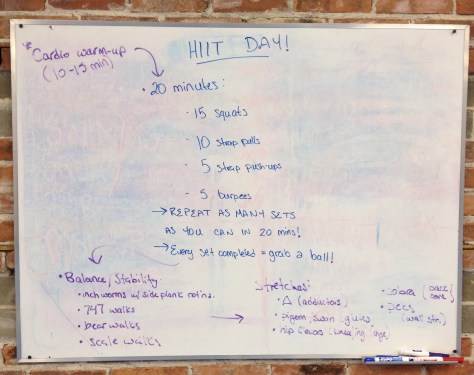 HIIT DAY!
* Cardio warm-up
(10-15 min)
• 20 minutes:
- 15 squats
- 10 strap pulls
- 5 strap push-ups
- 5 burpees
→ REPEAT AS MANY SETS
AS YOU CAN IN 20 mins!
→ Every set completed = grab a ball!
• Balance, Stability:
• inch worms w/ side plank rot'ns.
• 747 walks
• bear walks
• scale walks
Stretches:
• Δ (adductors)
• pigeon, swan, glutes
• hip flexors (kneeling lunge)
• cobra
• pecs
(wall